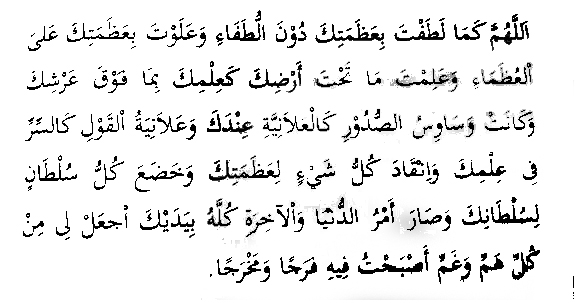 اَللّٰهُمَّ كَمَا لَطَفْتَ بِعَظَمَتِكَ دُوْنَ الُّطَفَاءِ وَعَلَوْتَ بِعَظَمَتِكَ عَلىَ
اْلعُظَمَاءِ وَعَلِمْتَ مَا تَحْتَ أَرْضِكَ كَعِلْمِكَ بِمَا فَوْقَ عَرْشِكَ
وَكَانَتْ وَسَاوِسُ الصُّدُوْرِ كَالْعَلاَنِيَّةِ عِنْدَكَ وَعَلاَنِيَةُ اْلقَوْلِ كَالسِّرِّ
فِى عِلْمِكَ وَاِنْقَادَ كُلُّ شَيْءٍ لِعَظَمَتِكَ وَخَضَعَ كُلُّ سُلْطَانٍ
لِسُلْطَانِكَ وَصَارَ أَمْرُ الدُّنْيَا وَاْلآخِرَةِ كُلُّهُ بِيَدَيْكَ اجعَلْ لِى مِنْ
كُلِّ هَمٍّ وَغَمٍّ أَصْبَحْتُ فِيهِ فَرَجًا وَمَخْرَجًا.